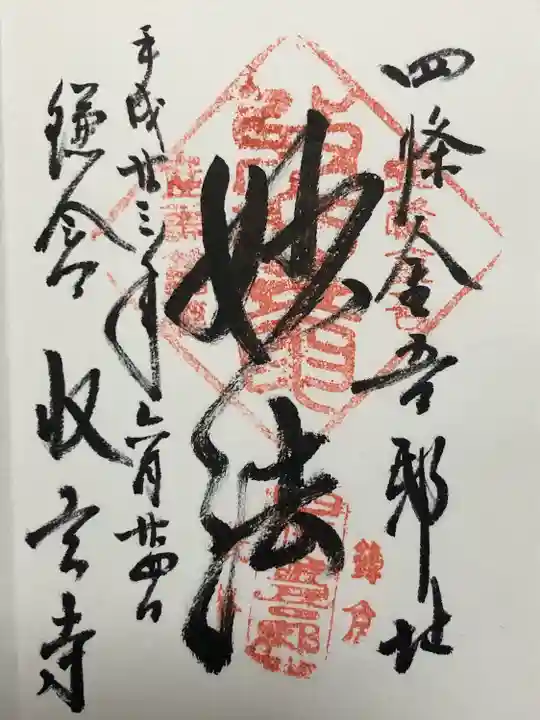 四條金吾邸址
妙法
平成廿三年六月廿四日
鎌倉 收玄寺
鎌倉